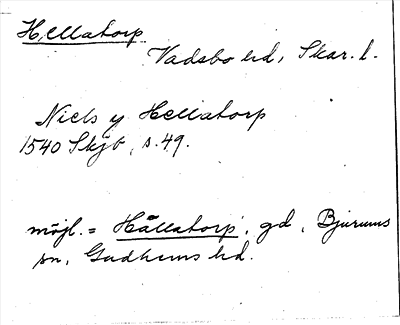 Hellatorp
Vadsbo hd, Skar. l.
Niels y Hellatorp
1540 Skjb, s. 49.
möjl. = Hållatorp, gd, Bjurums
sn, Gudhems hd.